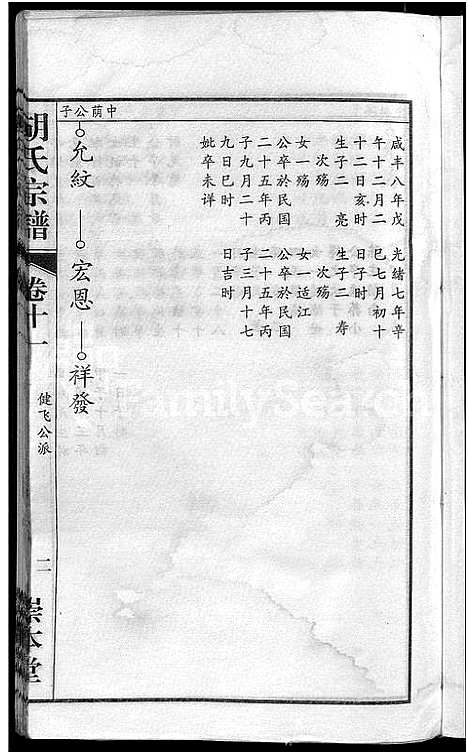 咸丰八年戊
午十二月二
十二日亥时
生子二 亮
次殇
女一殇
公卒於民国
二十五年丙
子九月二十
九日巳时
妣卒未详
光緒七年辛
巳七月初十
日子时
生子二 寿
次殇
女一适江
公卒於民国
二十五年丙
子三月十七
日吉时
中荫公子
允紋 宏恩 祥發
胡氏宗譜
卷十一
健飞公派
二
崇本堂